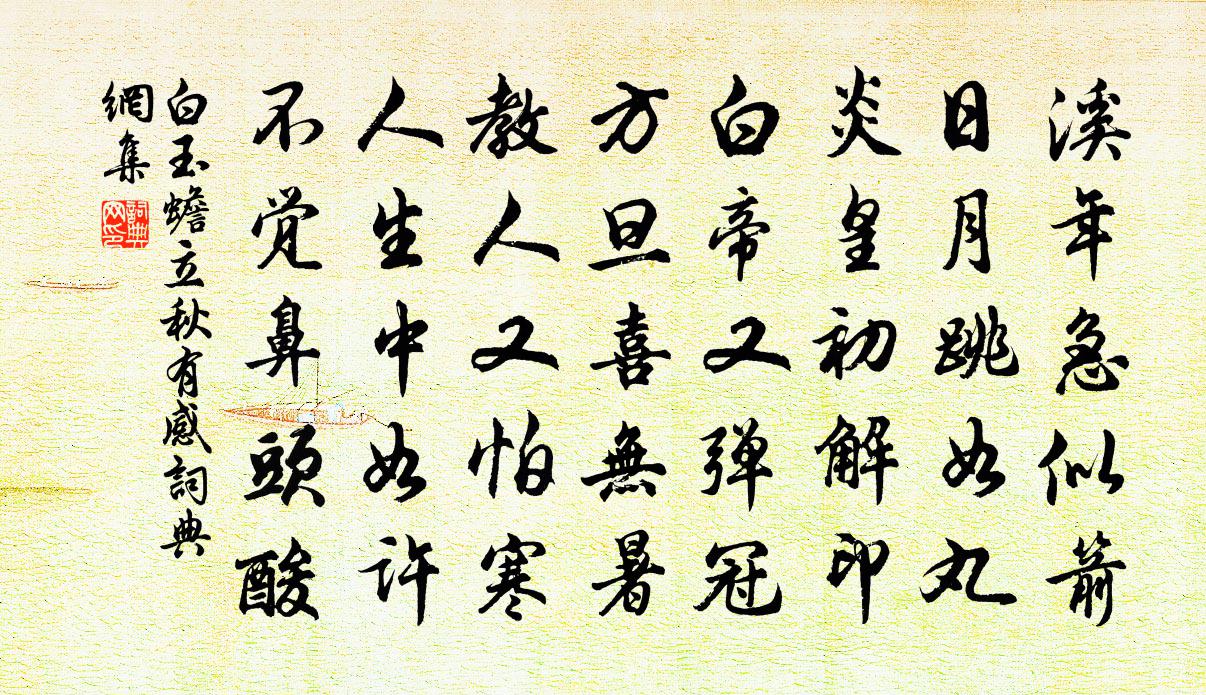 溪年急似箭
日月跳如丸
炎皇初解印
白帝又弾冠
方旦喜無暑
教人又怕寒
人生中如许
不觉鼻頭酸
白玉蟾立秋有感詞典
網集
詞典
网印